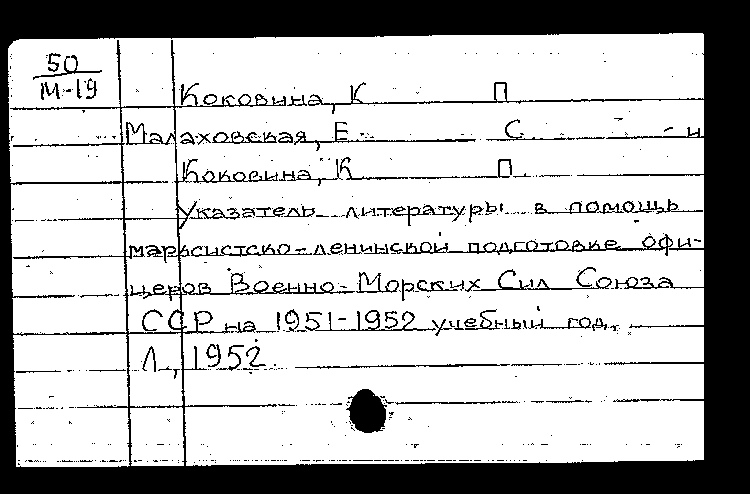 50
М-19
Коковина, К П
Малаховская, Е С. - и
Коковина, К П.
Указатель литературы в помощь
марксистско-ленинской подготовке офи-
церов Военно-Морских Сил Союза
ССР на 1951-1952 учебный год.
Л., 1952.